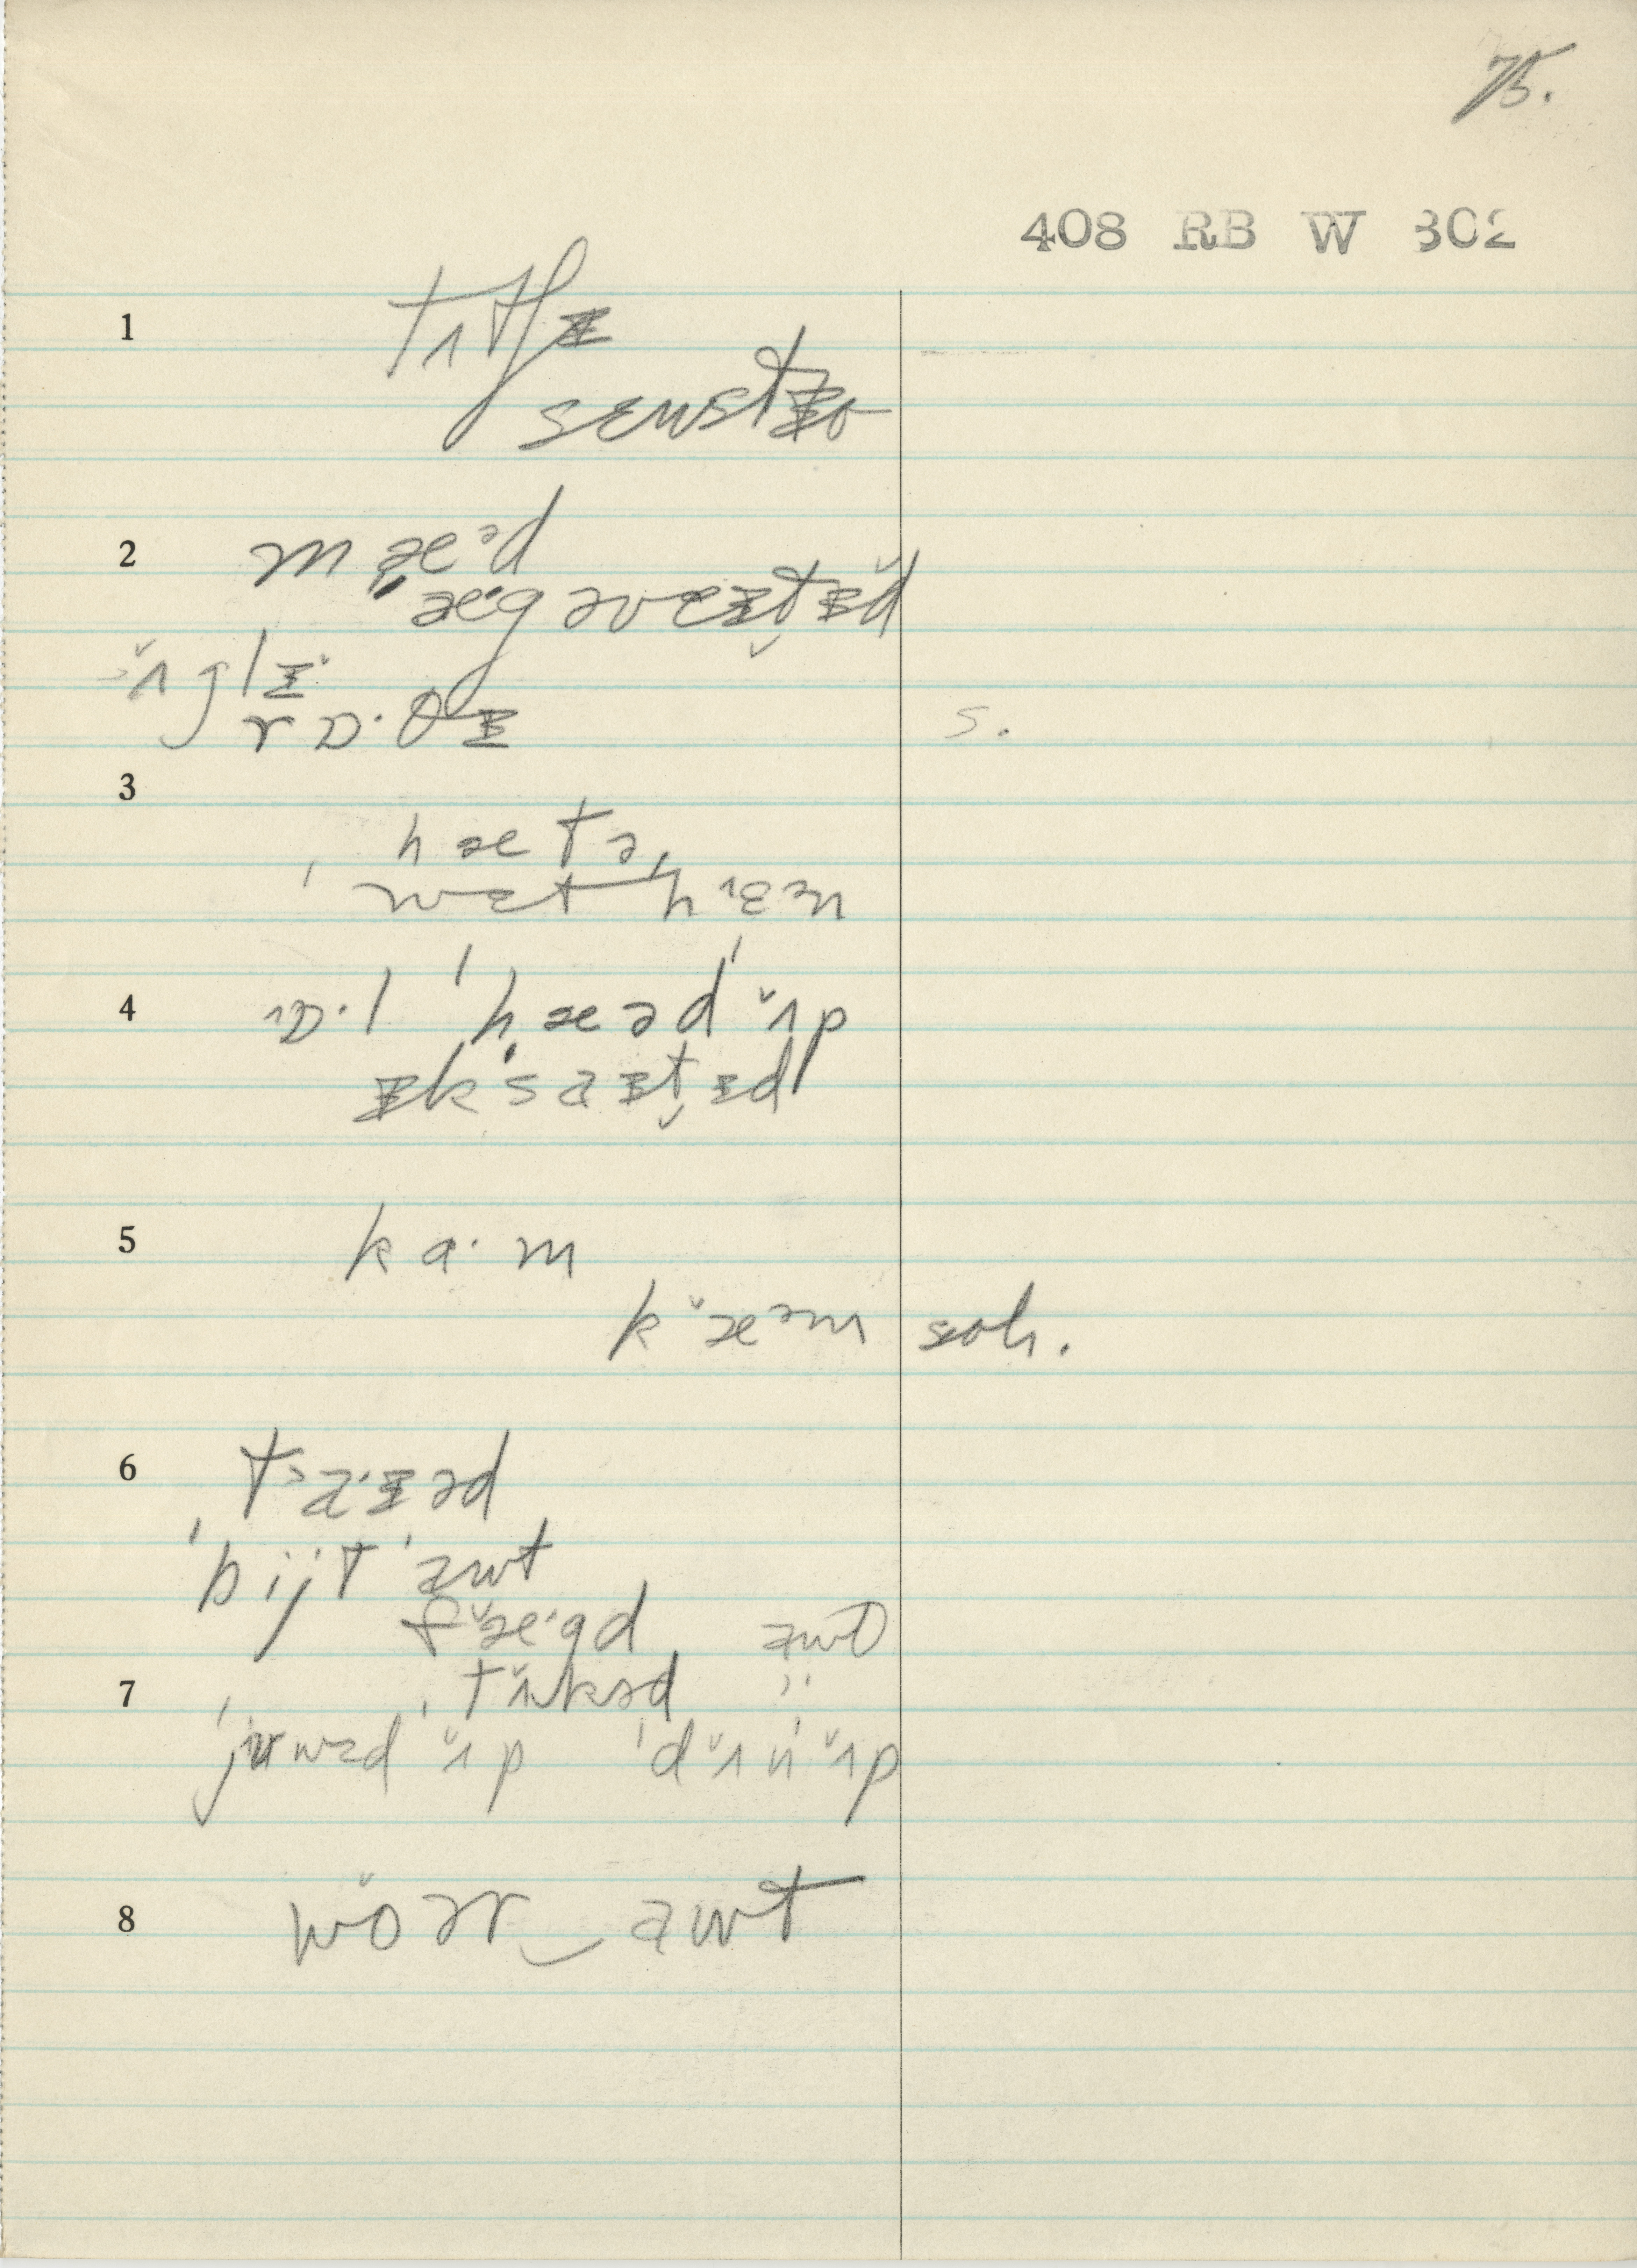 75.
408 RB W 302
1 tʌtʃɪ
sɛnsətɪv
2 mæᵊd
ægəveɪt̬ɪd
ʌglɪ
rɒ·θɪ s.
3 hætə
wɛt hɛn
4 ɒ·l 'hæəd' ʌp
ɪk'saɪt̬ɪd
5 ka·m
kæᵊm soh.
6 taɪəd
'bijt 'awt
fægd awt
7 tʌkəd
'juwzd ʌp 'dʌn' ʌp
8 wɔər‿awt